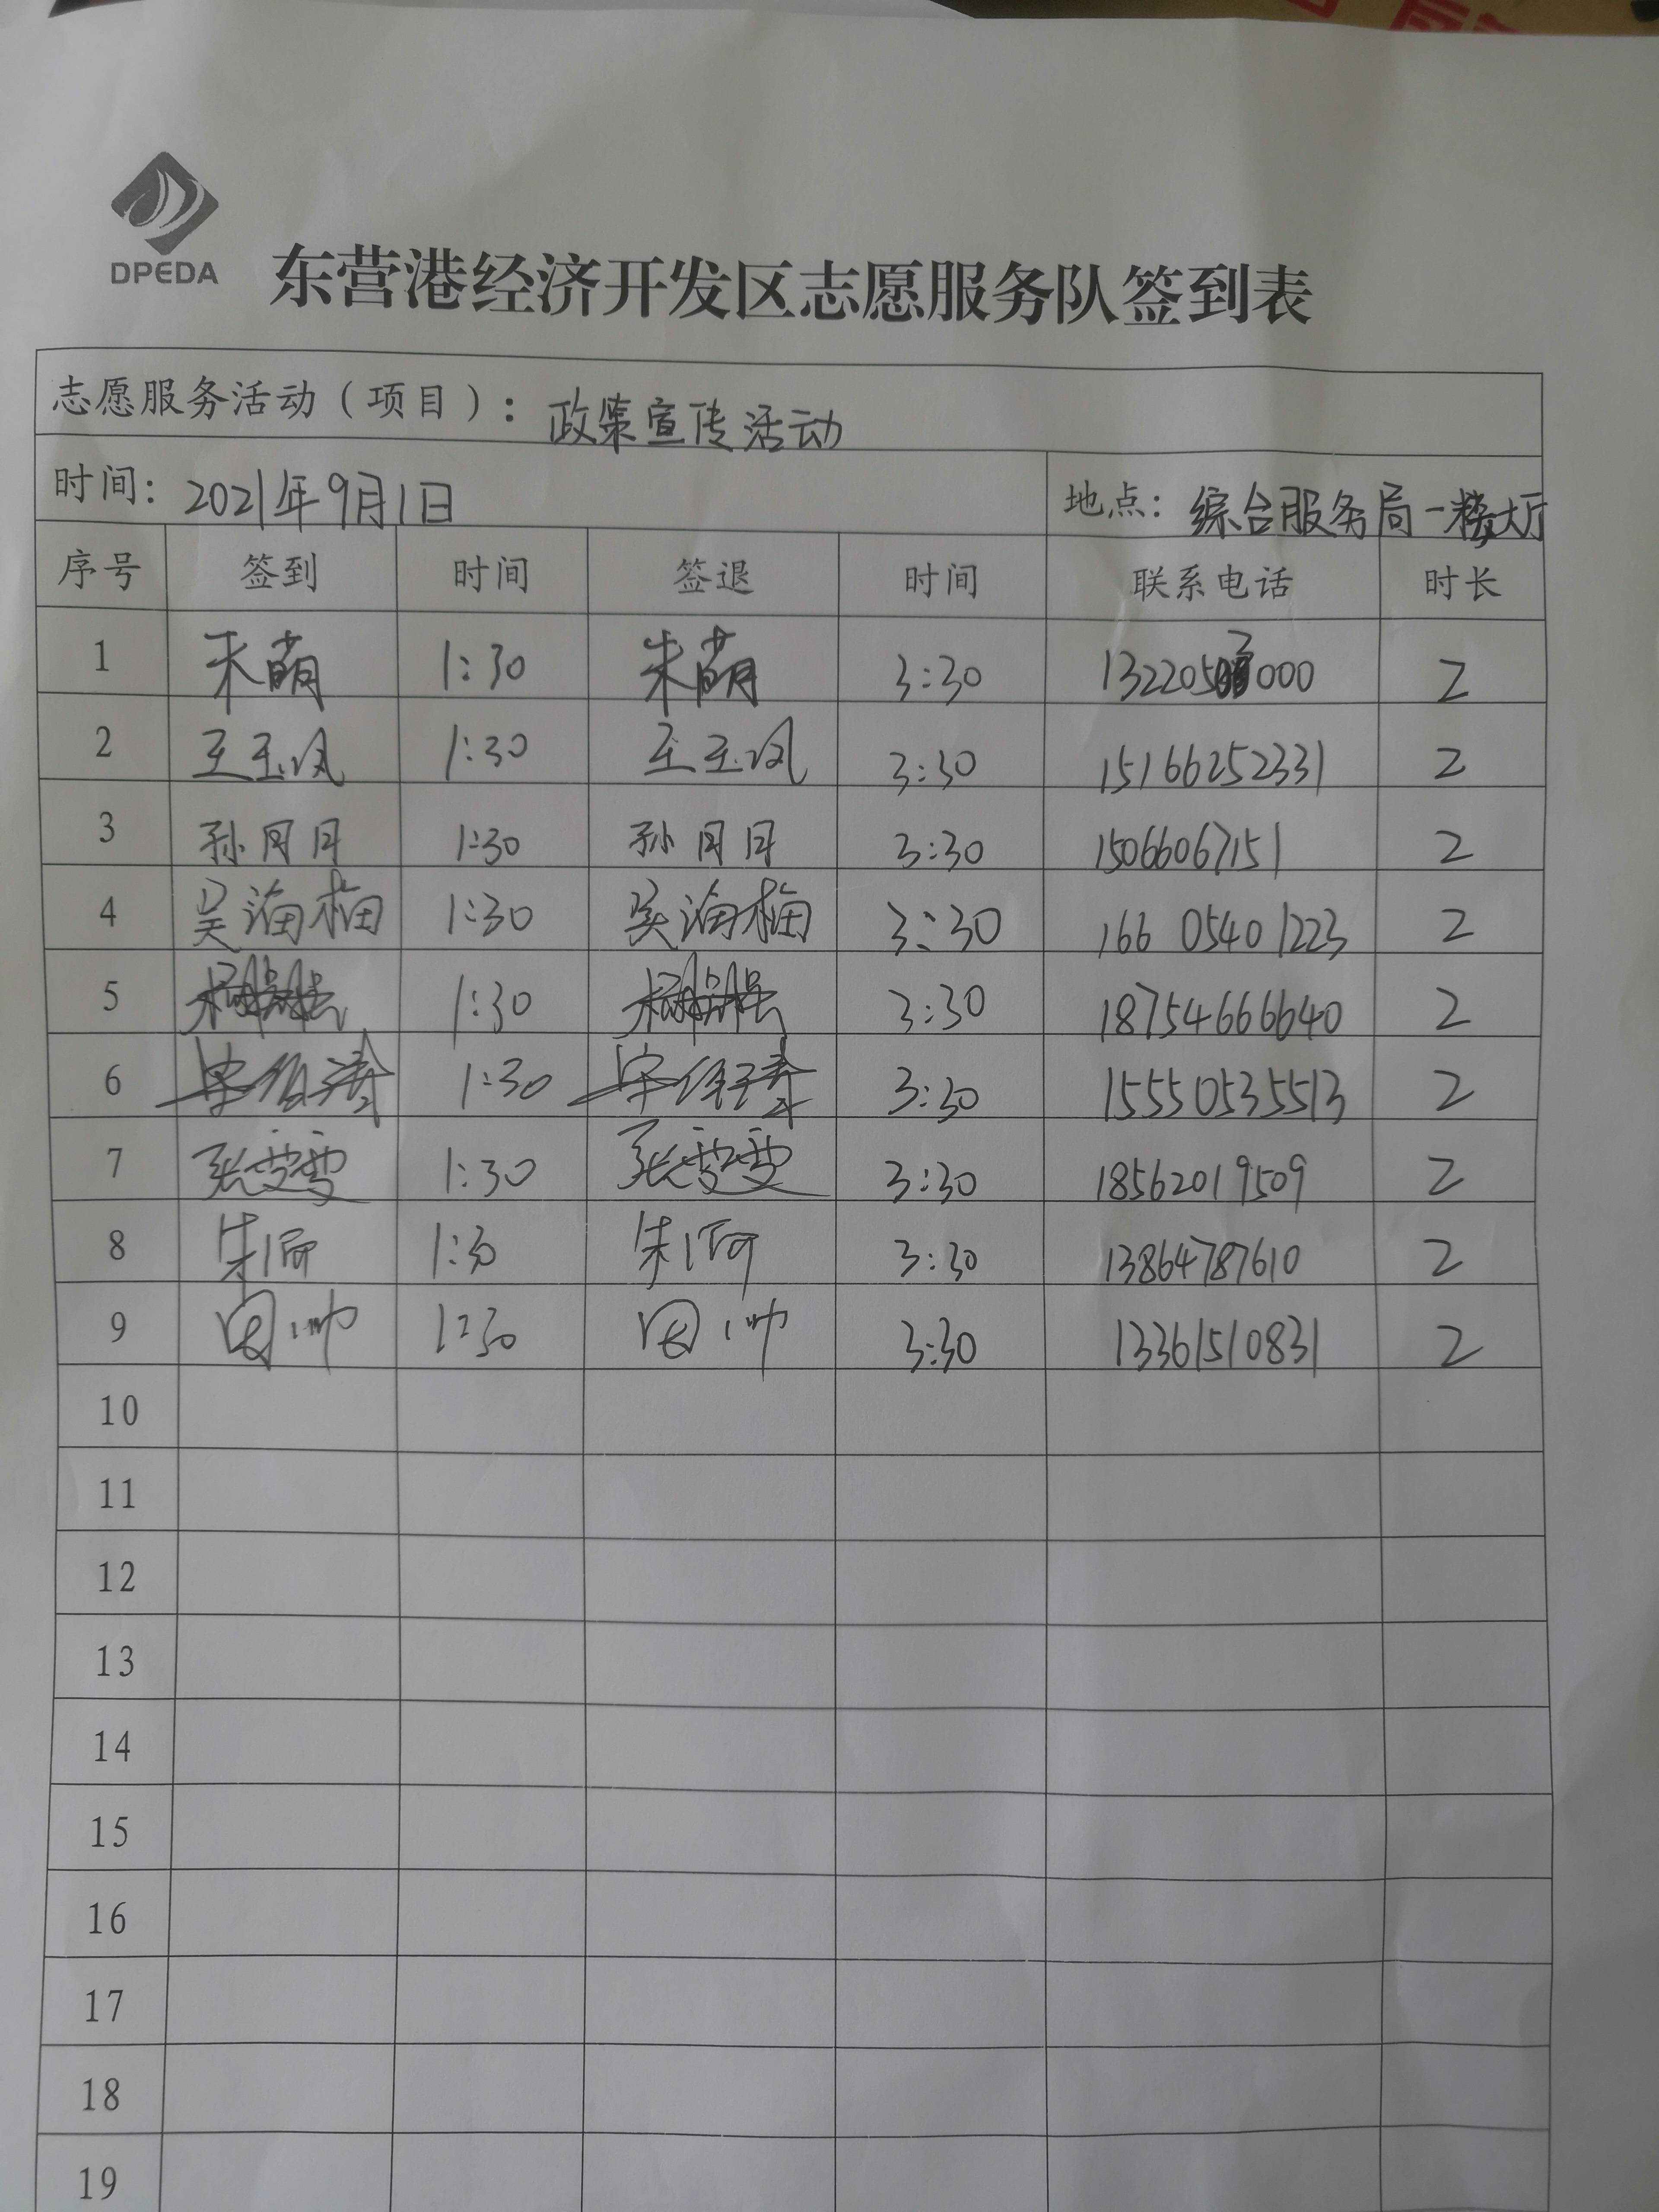 DPEDA
东营港经济开发区志愿服务队签到表
志愿服务活动（项目）：政策宣传活动
时间：2021年9月1日 地点：综合服务局一楼大厅
序号 签到 时间 签退 时间 联系电话 时长
1 朱萌 1:30 朱萌 3:30 3:30 2
2 王玉凤 1:30 王玉凤 3:30 15166252331 2
3 孙月月 1:30 孙月月 3:30 15066067151 2
4 吴海梅 1:30 吴海梅 3:30 166 0540 1223 2
5 1:30 3:30 18754666640 2
6 1:30 3:30 15550535513 2
7 张雯雯 1:30 张雯雯 3:30 18562019509 2
8 1:30 3:30 13864787610 2
9 1:30 3:30 13361510831 2
10
11
12
13
14
15
16
17
18
19